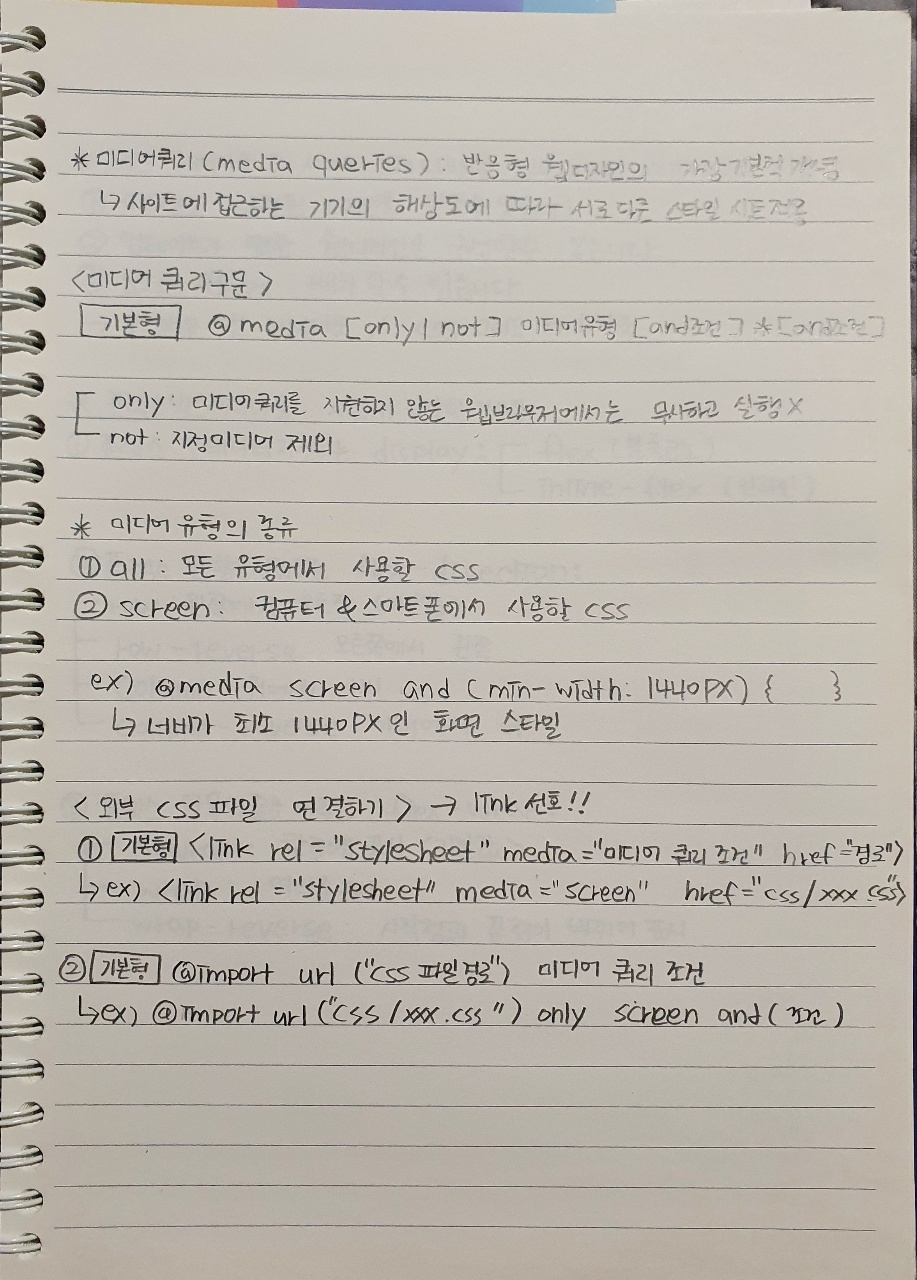 * 미디어쿼리 (media queries) : 반응형 웹디자인의 가장 기본적 개념
↳ 사이트에 접근하는 기기의 해상도에 따라 서로 다른 스타일 시트 적용
<미디어 쿼리 구문>
기본형 @media [only | not] 미디어 유형 [and 조건] * [and 조건]
only : 미디어쿼리를 지원하지 않는 웹브라우저에서는 무시하고 실행 X
not : 지정미디어 제외
* 미디어 유형의 종류
① all : 모든 유형에서 사용할 CSS
② screen : 컴퓨터 & 스마트폰에서 사용할 CSS
ex) @media screen and (min-width: 1440PX) { }
↳ 너비가 최소 1440PX인 화면 스타일
< 외부 CSS 파일 연결하기 > → link 선호!!
① 기본형 <link rel = "stylesheet" media="미디어 쿼리 조건" href="경로">
↳ ex) <link rel = "stylesheet" media="screen" href="css/xxx.css">
② 기본형 @import url ("css 파일경로") 미디어 쿼리 조건
↳ ex) @import url ("css/xxx.css") only screen and (조건)